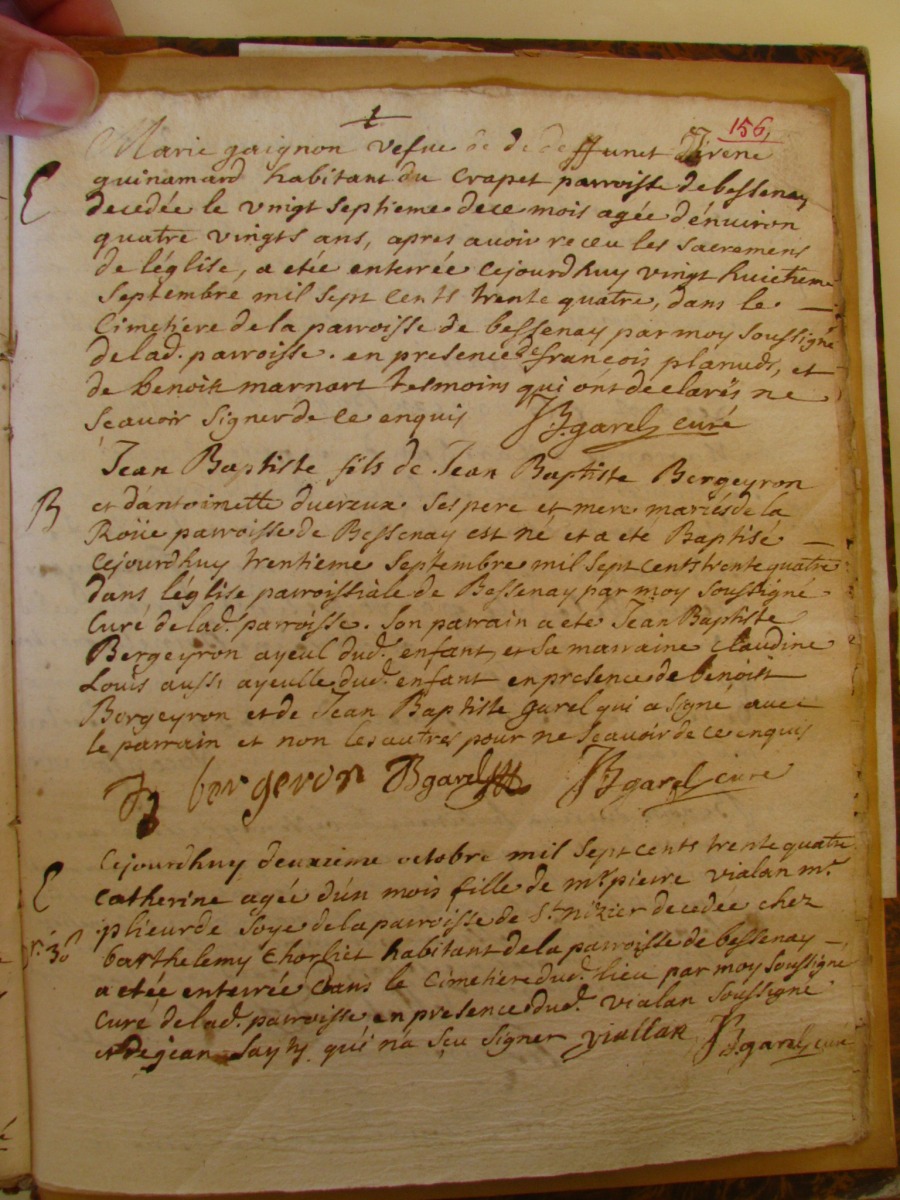 156
Marie gaignon vefue de deffunct
guinamard habitant du Crapet parroisse de bessenay
E
decedée le vingt septieme de ce mois agée d'énuiron
quatre vingts ans, apres auoir receu les sacremens
de léglise, a etée enterrée cejourdhuy vingt huictieme
septembre mil sept cents trente quatre, dans le
Cimetiere de la parroisse de bessenay par moy soussigné
de lad. parroisse. en presence de francois planud, et
de benoit marnart tesmoins qui ont declarés ne
scauoir signer de ce enquis JBgarel curé
Jean Baptiste fils de Jean Baptiste Bergeyron
B
et dantoinette ses pere et mere mariés de la
Roüe parroisse de Bessenay est né et a eté Baptisé
cejourdhuy trentieme septembre mil sept cents trente quatre
dans léglise parroissiale de Bessenay par moy soussigné
Curé de lad. parroisse. Son parrain a eté Jean Baptiste
Bergeyron ayeul dud. enfant, et sa marraine Claudine
Louis aussi ayeulle dud. enfant en presence de benoist
Bergeyron et de Jean Baptiste garel qui a signé auec
le parrain et non les autres pour ne scauoir de ce enquis
bergeron JBgarel JBgarel curé
Cejourdhuy deuxieme octobre mil sept cents trente quatre
E
catherine agée d'ún mois fille de mr. pierre vialan mr.
plieur de soye de la parroisse de St. nizier decedée chez
barthelemy habitant de la parroisse de bessenay
a etée enterrée dans le cimetiere dud. lieu par moy soussigné
Curé de lad. parroisse en presence dud. vialan soussigné
et de jean qui n'a sçu signer viallan JBgarel curé